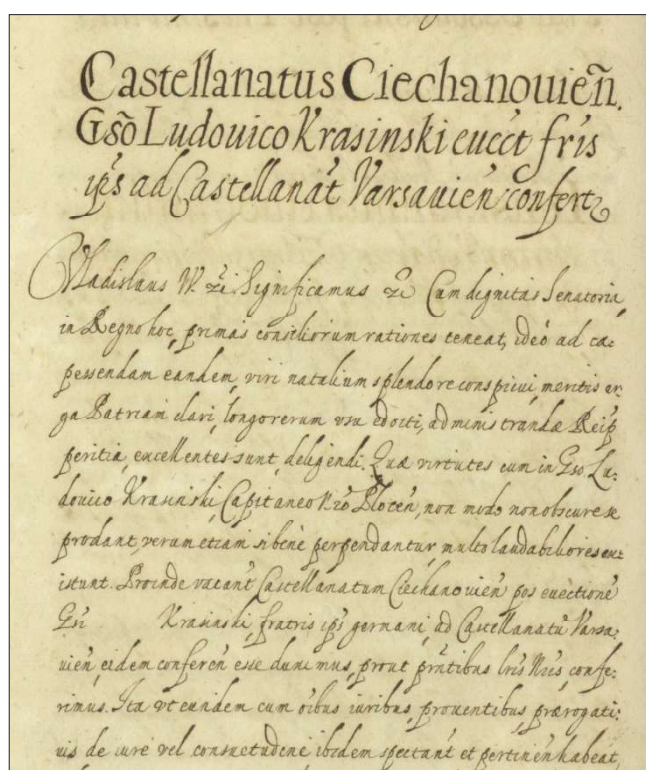 Castellanatus Ciechanouień.
Gsõ Ludouico Krasinski euect fris
ips ad Castellanat Varsauień confert
Vladislaus IV. &c. Significamus &c. Cum dignitas Senatoria
in Regno hoc, primas consiliorum rationes teneat, ideò ad ca:
pessendam eandem, viri natalium splendore conspicui, meritis er:
ga Patriam clari, longo rerum vsu edocti, administrandæ Reip
peritiâ excellentes sunt, deligendi. Quæ virtutes cum in Gso Lu:
douico Krasinski Capitaneo Nrõ Plocen, non modo non obscure se
prodant, verum etiam si bene perpendantur, multo laudabiliores exi:
istunt. Proinde vacant Castellanatum Ciechanouień pos euectione
Gsi Krasinski, fratris ips germani, ad Castellanatũ Varsa:
uień, eidem conferen esse duximus, prout pñtibus lris Nris, confe:
rimus. Ita vt eundem cum oibus iuribus, prouentibus, prærogati:
uis de iure vel consuetudine ibidem spectant et pertinen habeat,